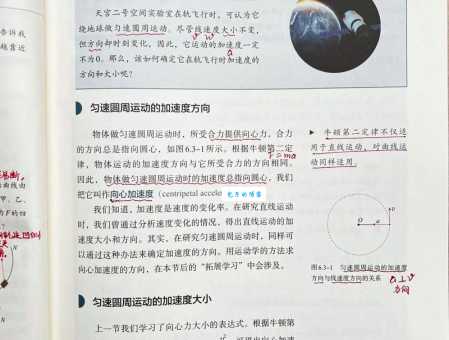 天宫二号空间实验室在轨飞行时，可认为它
绕地球做匀速圆周运动。尽管线速度大小不变，
但方向却时刻变化，因此，它运动的加速度一定
不为0。那么，该如何确定它在轨飞行时加速度的
方向和大小呢？
告诉我
越靠近
匀速圆周运动的加速度方向
物体做匀速圆周运动时，所受合力提供向心力，合力
的方向总是指向圆心，如图6.3-1所示。根据牛顿第二定
律，物体运动的加速度方向与它所受合力的方向相同。
因此，物体做匀速圆周运动时的加速度总指向圆心，我们
把它叫作向心加速度（centripetal accele
我们知道，加速度是速度的变化率。在研究直线运动
时，我们曾通过分析速度变化的情况，得出直线运动的加
速度大小和方向。其实，在研究匀速圆周运动时，同样可
以通过这种办法来确定加速度的方向。用运动学的方法求
向心加速度的方向，在本节后的“拓展学习”中会涉及。
F=ma
牛顿第二定律不仅适
用于直线运动，对曲线运
动同样适用。
O
a
v
图6.3-1 匀速圆周运动的加速度
方向与线速度方向的关系
a⊥v
方向
匀速圆周运动的加速度大小
上一节我们学习了向心力大小的表达式。根据牛顿第
曲线由
甲、乙、
N
N